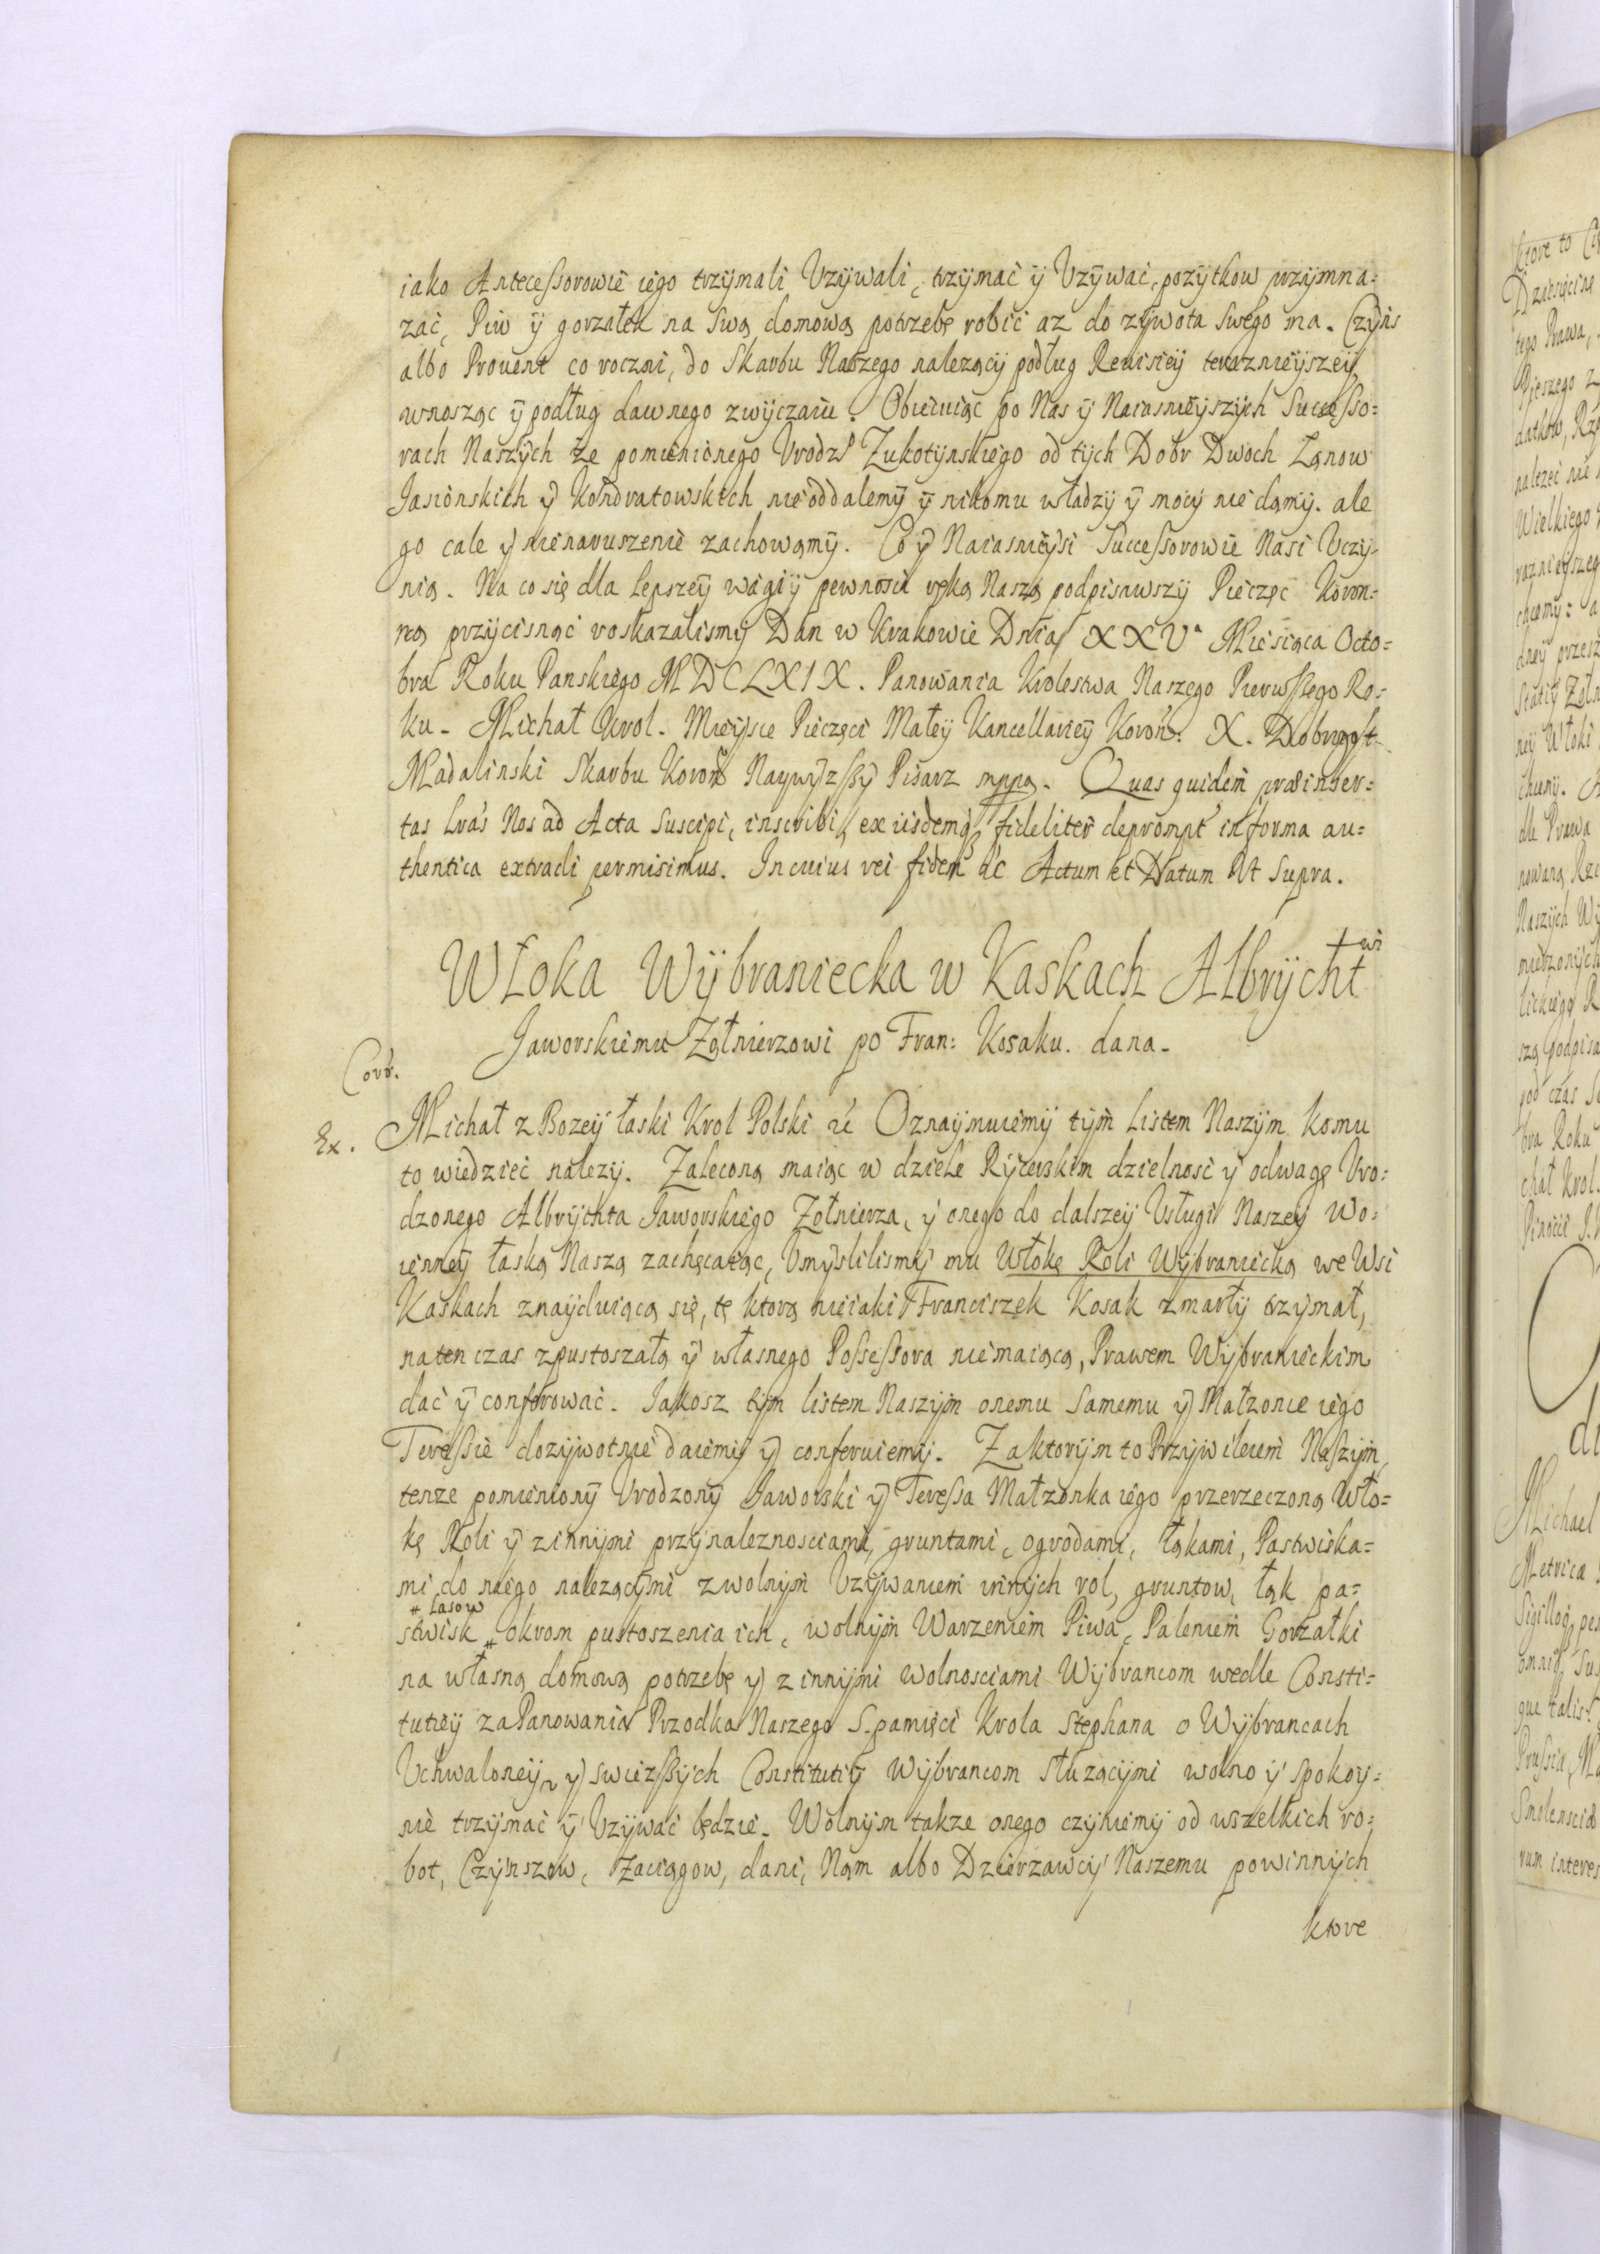 iako Antecessorowie iego trzymali Vzywali, trzymać ÿ Vzywać, pozytkow przymna:
zać, Piw ÿ gorzałek na swą domową potrzebę robić az do zywota swego ma. Czyns
albo Prouent co roczni, do Skarbu Naszego nalezący podług Rewisiey terazniejszey
wnosząc ÿ podług dawnego zwyczaiu. Obiecuiąc po Nas ÿ Naiasnieyszych Successo:
rach Naszych ze pomienionego Vrodz Zukotynskiego od tych Dobr Dwoch Łanow
Jasionskich ÿ Kondratowskich nieoddalemy ÿ nikomu władzy ÿ mocy nie damy. ale
go cale ÿ nienaruszenie zachowamy. Co ÿ Naiasnieysi Successorowie Nasi Vczy-
nią. Na co się dla lepszey wagi ÿ pewnosci ręką Naszą podpisawszy Pieczęc Koron:
ną przycisnąć roskazalismy Dan w Krakowie Dnia XXVa Miesiąca Octo:
bra Roku Panskiego MDCLXIX. Panowania Krolestwa Naszego Pierwssego Ro:
ku. Michał Krol. Mieysce Pieczęci Małey Kancellariey Koroń: X. Dobrogost
Madalinski Skarbu Koroñ Naywyzssy Pisarz mppa. Quas quidem præinser:
tas Lrás Nos ad Acta Suscipi, inscribi, ex iisdemq fideliter deprompt in forma au:
thentica extradi permisimus. In cuius rei fidem &c Actum et Datum Ut Supra.
Włoka Wybraniecka w Kaskach Albrychtwi
Jaworskiemu Zołnierzowi po Fran: Kosaku. dana.
Corr.
Ex. Michał z Bozey łaski Krol Polski &c Oznaymuiemy tym Listem Naszym komu
to wiedzieć nalezy. Zaleconą maiąc w dziele Rycerskim dzielnosć ÿ odwagę Vro:
dzonego Albrychta Jaworskiego Zołnierza, ÿ onego do dalszey Vsługi Naszey Wo:
ienney łaską Naszą zachęcaiąc, Vmyslilismy mu Włokę Roli Wybraniecką we Wsi
Kaskach znayduiącą się, tę ktorą nieiaki Franciszek Kosak zmarły trzymał,
na ten czas zpustoszałą ÿ własnego Possessora niemaiącą, Prawem Wybranieckim
dać ÿ conferować. Jakosz tym listem Naszym onemu samemu ÿ Małzonce iego
Teressie dozywotnie daiemy ÿ conferuiemy. Za ktorym to Przywileiem Naszym,
tenze pomieniony Vrodzony Jaworski ÿ Teressa Małzonka iego przerzeczoną Wło-
kę Roli ÿ z innymi przynaleznosciami, gruntami, ogrodami, łąkami, Pastwiska=
mi do niego nalezącymi z wolnym Vzywaniem innych rol, gruntow, łąk pa=
stwisk # Lasow okrom pustoszenia ich, wolnym Warzeniem Piwa, Paleniem Gorzałki
na własną domową potrzebę ÿ z innymi wolnosciami Wybrancom wedle Consti=
tutiey za Panowania Przodka Naszego S. pamięci Krola Stephana o Wybrancach
Vchwaloney, ÿ swiezssych Constitutiy Wybrancom słuzącymi wolno ÿ spokoy:
nie trzymać ÿ Vzywać będzie. Wolnym takze onego czyniemy od wszelkich ro:
bot, Czynszow, Zaciągow, dani, Nam albo Dzierzawcy Naszemu powinnych
ktore